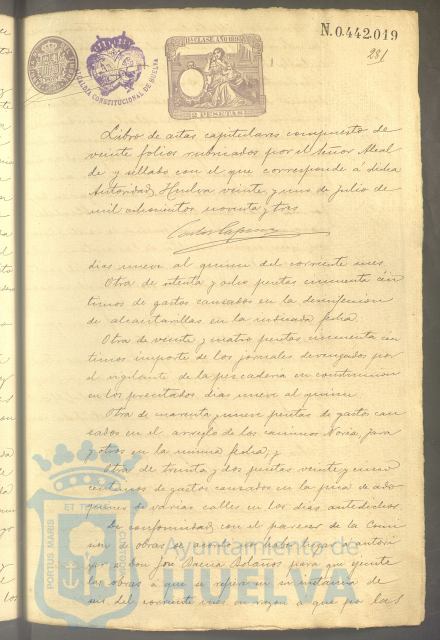 N.0.442.019
281
11ª CLASE AÑO 1893
ALCALDÍA CONSTITUCIONAL DE HUELVA
2 PESETAS
Libro de actas capitulares compuesto de
veinte folios rubricados por el Señor Alcal
de y sellado con el que corresponde á dicha
Autoridad, Huelva veinte y uno de Julio de
mil ochocientos noventa y tres
dias nueve al quince del corriente mes
Otra de setenta y ocho pesetas cincuenta cén
timos de gastos causados en la desinfeccion
de alcantarillas en la indicada fecha.
Otra de veinte y cuatro pesetas cincuenta cén
timos importe de los jornales devengados por
el vigilante de la pescaderia en construccion
en los precitados dias nueve al quince.
Otra de cuarenta y nueve pesetas de gastos cau
sados en el arreglo de los caminos Noria,
y otros en la misma fecha; y
Otra de treinta y dos pesetas veinte y cinco
céntimos de gastos causados en la de ado
quines de varias calles en los dias antedichos.
De conformidad con el parecer de la Comi
sion de obras se acordó
á don José para que ejecute
las obras a que se refiere en su instancia de
seis del corriente mes en razon a que por las
PORTUS MARIS ET TERRÆ CUSTODIA
Ayuntamiento de
HUELVA